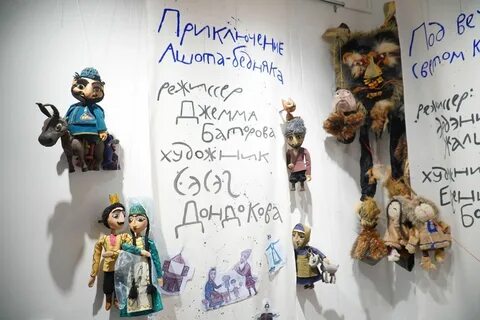 Приключение
Ашота-бедняка
режиссёр
Джемма
Баторова
художник
Сэсэг
Дондокова
Под ве
светом
режиссёр:
художни